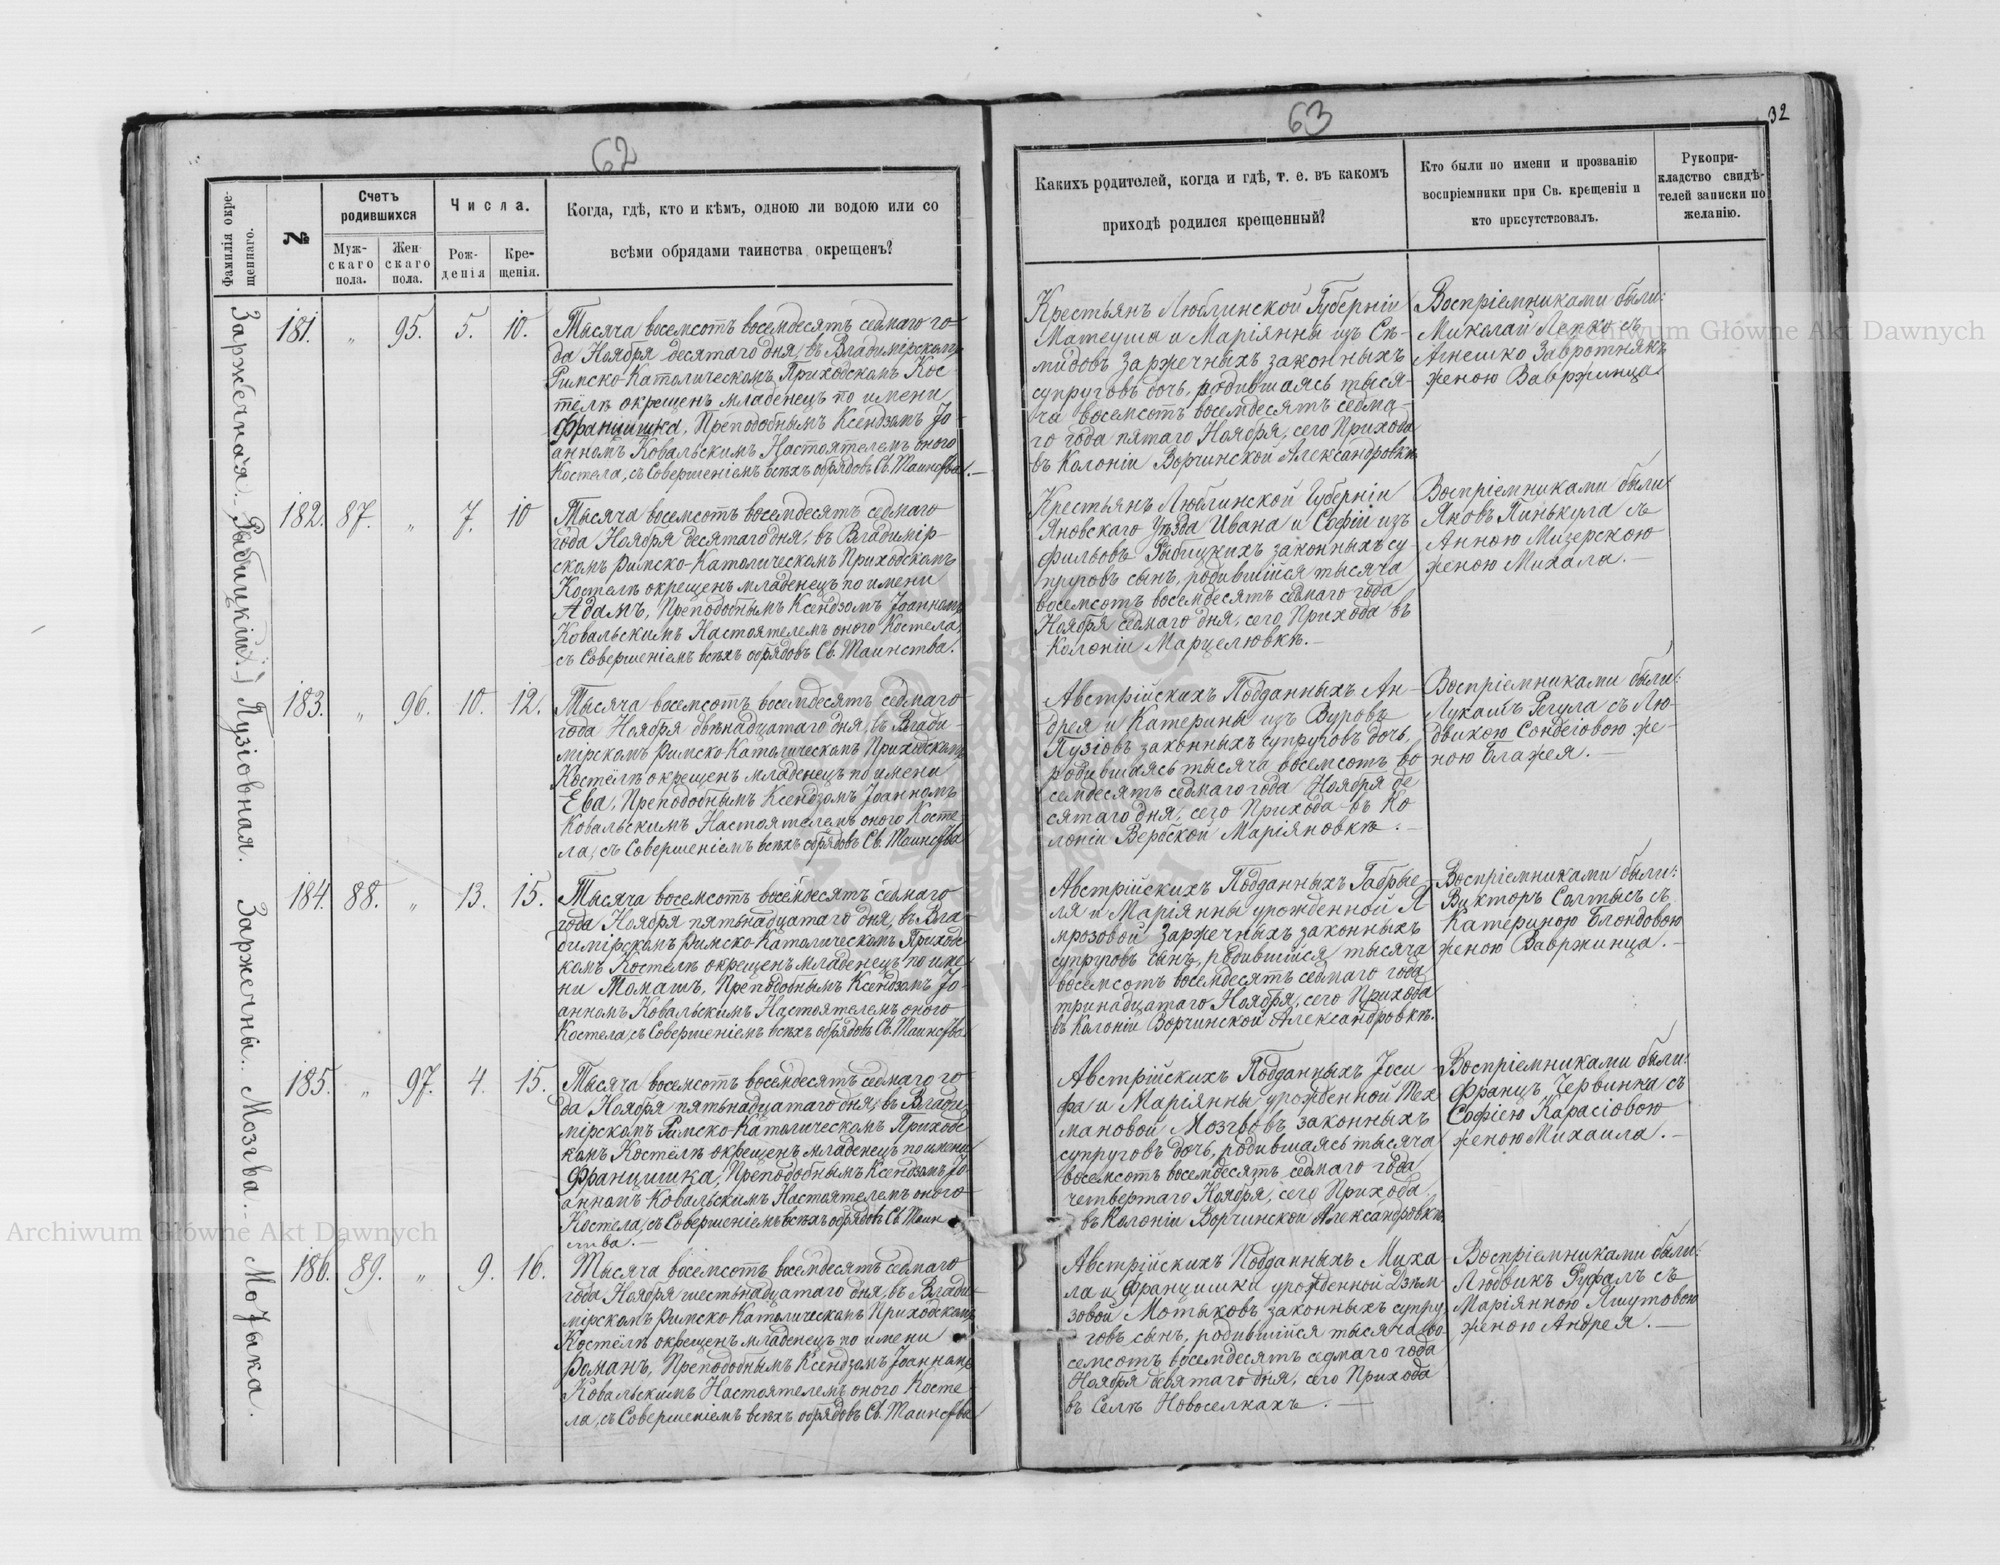 62
63
32
Фамилія окре-
щеннаго.
№
Счетъ
родившихся
Муж-
скаго
пола.
Жен-
скаго
пола.
Числа.
Рож-
денія
Кре-
щенія.
Когда, гдѣ, кто и кѣмъ, одною ли водою или со
всѣми обрядами таинства окрещенъ?
Какихъ родителей, когда и гдѣ, т. е. въ какомъ
приходѣ родился крещенный?
Кто были по имени и прозванію
воспріемники при Св. крещеніи и
кто присутствовалъ.
Рукопри-
кладство свидѣ-
телей записки по
желанію.
Заржечная.
181. „ 95. 5. 10.
Тысяча восемсотъ восемдесятъ седмаго го-
да Ноября десятаго дня, въ Владимірскомъ
Римско-Католическомъ Приходскомъ Кос-
телѣ окрещенъ младенецъ по имени
Францишка, Преподобнымъ Ксендзомъ Іо-
анномъ Ковальскимъ Настоятелемъ оного
Костела, съ Совершеніемъ всѣхъ обрядовъ Св. Таинства.—
Крестьянъ Люблинской Губерніи
Матеуша и Маріянны изъ
Заржечныхъ законныхъ
супруговъ дочь, родившаясь тыся-
ча восемсотъ восемдесятъ седма-
го года пятаго Ноября, сего Прихода
въ Колоніи Ворчинской Александровкѣ
Воспріемниками были:
Миколай Лепко съ
Агнешко
женою Вавржинца
Рыбицкій.
182. 87. „ 7. 10
Тысяча восемсотъ восемдесятъ седмаго
года Ноября десятаго дня, въ Владимір-
скомъ Римско-Католическомъ Приходскомъ
Костелѣ окрещенъ младенецъ по имени
Адамъ, Преподобнымъ Ксендзомъ Іоанномъ
Ковальскимъ Настоятелемъ оного Костела,
съ Совершеніемъ всѣхъ обрядовъ Св. Таинства.
Крестьянъ Люблинской Губерніи
Яновскаго Уѣзда Ивана и Софіи изъ
Рыбицкихъ законныхъ су-
пруговъ сынъ, родившійся тысяча
восемсотъ восемдесятъ седмаго года
Ноября седмаго дня, сего Прихода въ
Колоніи Марцелювкѣ.—
Воспріемниками были
Яковъ Пинькула съ
Анною Мизерскою
женою Михала.
Пузіовная.
183. „ 96. 10. 12.
Тысяча восемсотъ восемдесятъ седмаго
года Ноября двѣнадцатаго дня, въ Влади-
мірскомъ Римско-Католическомъ Приходскомъ
Костелѣ окрещенъ младенецъ по имени
Ева, Преподобнымъ Ксендзомъ Іоанномъ
Ковальскимъ Настоятелемъ оного Косте-
ла, съ Совершеніемъ всѣхъ обрядовъ Св. Таинства
Австрійскихъ Подданныхъ Ан-
дрея и Катерины изъ Вуровъ
Пузіовъ законныхъ супруговъ дочь,
родившаясь тысяча восемсотъ во-
семдесятъ седмаго года Ноября де-
сятаго дня, сего Прихода въ Ко-
лоніи Вербской Маріяновкѣ.—
Воспріемниками были:
Лукашъ Регула съ Лю-
двикою Сондеіовою же-
ною Блажея.—
Заржечны.
184. 88. „ 13. 15.
Тысяча восемсотъ восемдесятъ седмаго
года Ноября пятьнадцатаго дня, въ Вла-
димірскомъ Римско-Католическомъ Приходс-
комъ Костелѣ окрещенъ младенецъ по име-
ни Томашъ, Преподобнымъ Ксендзомъ Іо-
анномъ Ковальскимъ Настоятелемъ оного
Костела, съ Совершеніемъ всѣхъ обрядовъ Св. Таинства
Австрійскихъ Подданныхъ Габрые-
ля и Маріянны урожденной Я-
мрозовой Заржечныхъ законныхъ
супруговъ сынъ, родившійся тысяча
восемсотъ восемдесятъ седмаго года
тринадцатаго Ноября, сего Прихода
въ Колоніи Ворчинской Александровкѣ.
Воспріемниками были:
Викторъ Солтысъ съ
Катериною Блондовою
женою Вавржинца.—
Мозгва.
185. „ 97. 4. 15.
Тысяча восемсотъ восемдесятъ седмаго го-
да Ноября пятьнадцатаго дня, въ Влади-
мірскомъ Римско-Католическомъ Приходс-
комъ Костелѣ окрещенъ младенецъ по имени
Францишка, Преподобнымъ Ксендзомъ Іо-
анномъ Ковальскимъ Настоятелемъ оного
Костела, съ Совершеніемъ всѣхъ обрядовъ Св. Таин-
ства.—
Австрійскихъ Подданныхъ Іоси
фа и Маріянны урожденной Тех
мановой Мозгвовъ законныхъ
супруговъ дочь, родившаясь тысяча
восемсотъ восемдесятъ седмаго года
четвертаго Ноября, сего Прихода
въ Колоніи Ворчинской Александровкѣ
Воспріемниками были:
Францъ Червинка съ
Софіею Карасіовою
женою Михаила.—
Мотыка.
186. 89. „ 9. 16.
Тысяча восемсотъ восемдесятъ седмаго
года Ноября шестьнадцатаго дня, въ Влади-
мірскомъ Римско-Католическомъ Приходскомъ
Костелѣ окрещенъ младенецъ по имени
Романъ, Преподобнымъ Ксендзомъ Іоанномъ
Ковальскимъ Настоятелемъ оного Косте-
ла, съ Совершеніемъ всѣхъ обрядовъ Св. Таинства
Австрійскихъ Подданныхъ Миха
ла и Францишки урожденной
Мотыковъ законныхъ супру-
говъ сынъ, родившійся тысяча во-
семсотъ восемдесятъ седмаго года
Ноября девятаго дня, сего Прихода
въ Селѣ Новоселкахъ.—
Воспріемниками были:
Людвикъ Руфалъ съ
Маріянною Яшутовою
женою Андрея.—
Archiwum Główne Akt Dawnych
Archiwum Główne Akt Dawnych